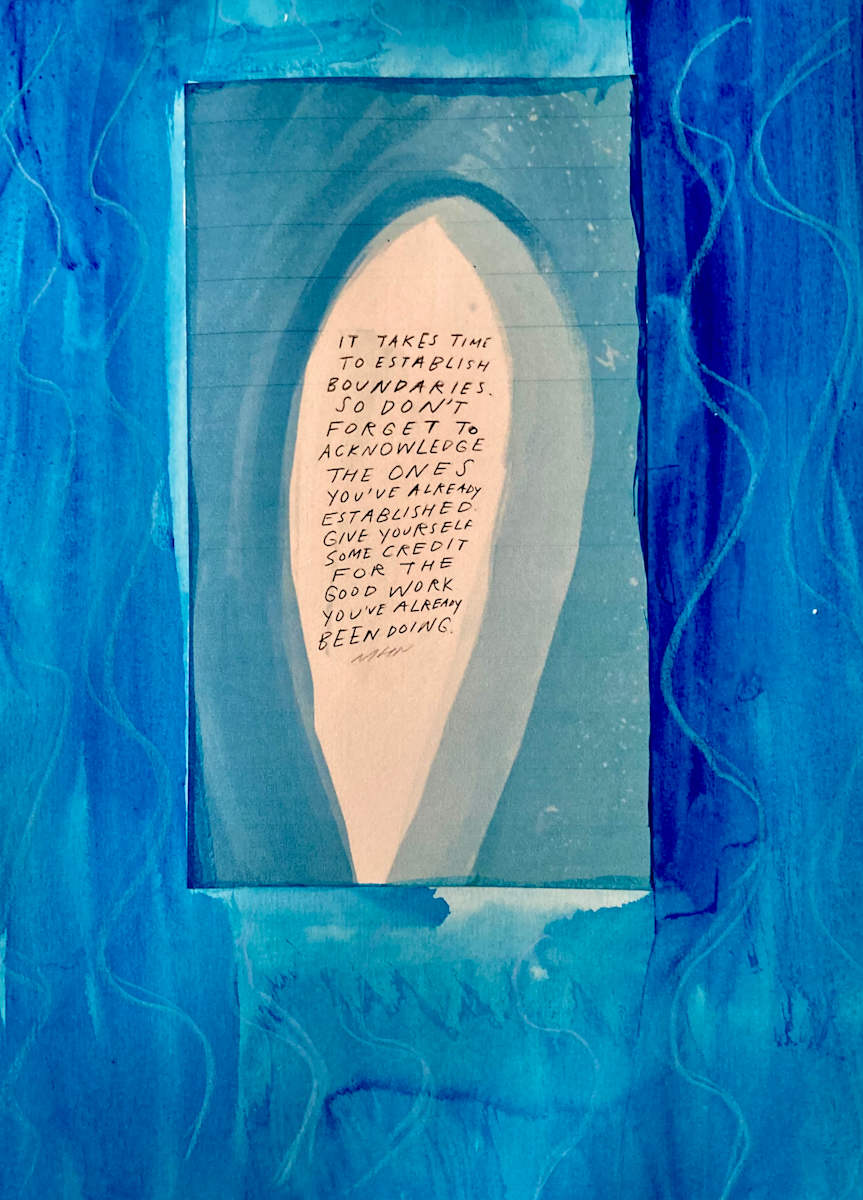 IT TAKES TIME
TO ESTABLISH
BOUNDARIES.
SO DON'T
FORGET TO
ACKNOWLEDGE
THE ONES
YOU'VE ALREADY
ESTABLISHED.
GIVE YOURSELF
SOME CREDIT
FOR THE
GOOD WORK
YOU'VE ALREADY
BEEN DOING.
MHN